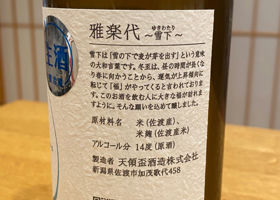 生酒
雅楽代
ゆきわたり
～雪下～
雪下は「雪の下で麦が芽を出す」という意味
の大和言葉です。冬至は、昼の時間が長くな
り春に向かうことから、運気が上昇傾向に
転じて「福」がやってくると言われております。
このお酒を飲む人に大きな福が訪れま
すように。そんな願いを込めて醸しました。
原材料名 米（佐渡産）、
米麹（佐渡産米）
アルコール分 14度（原酒）
製造者 天領盃酒造株式会社
新潟県佐渡市加茂歌代458